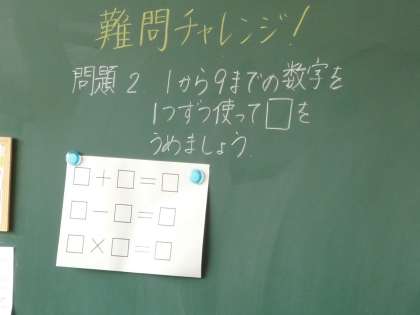 難問チャレンジ!
問題2. 1から9までの数字を
1つずつ使って□を
うめましょう.
□+□=□
□-□=□
□×□=□